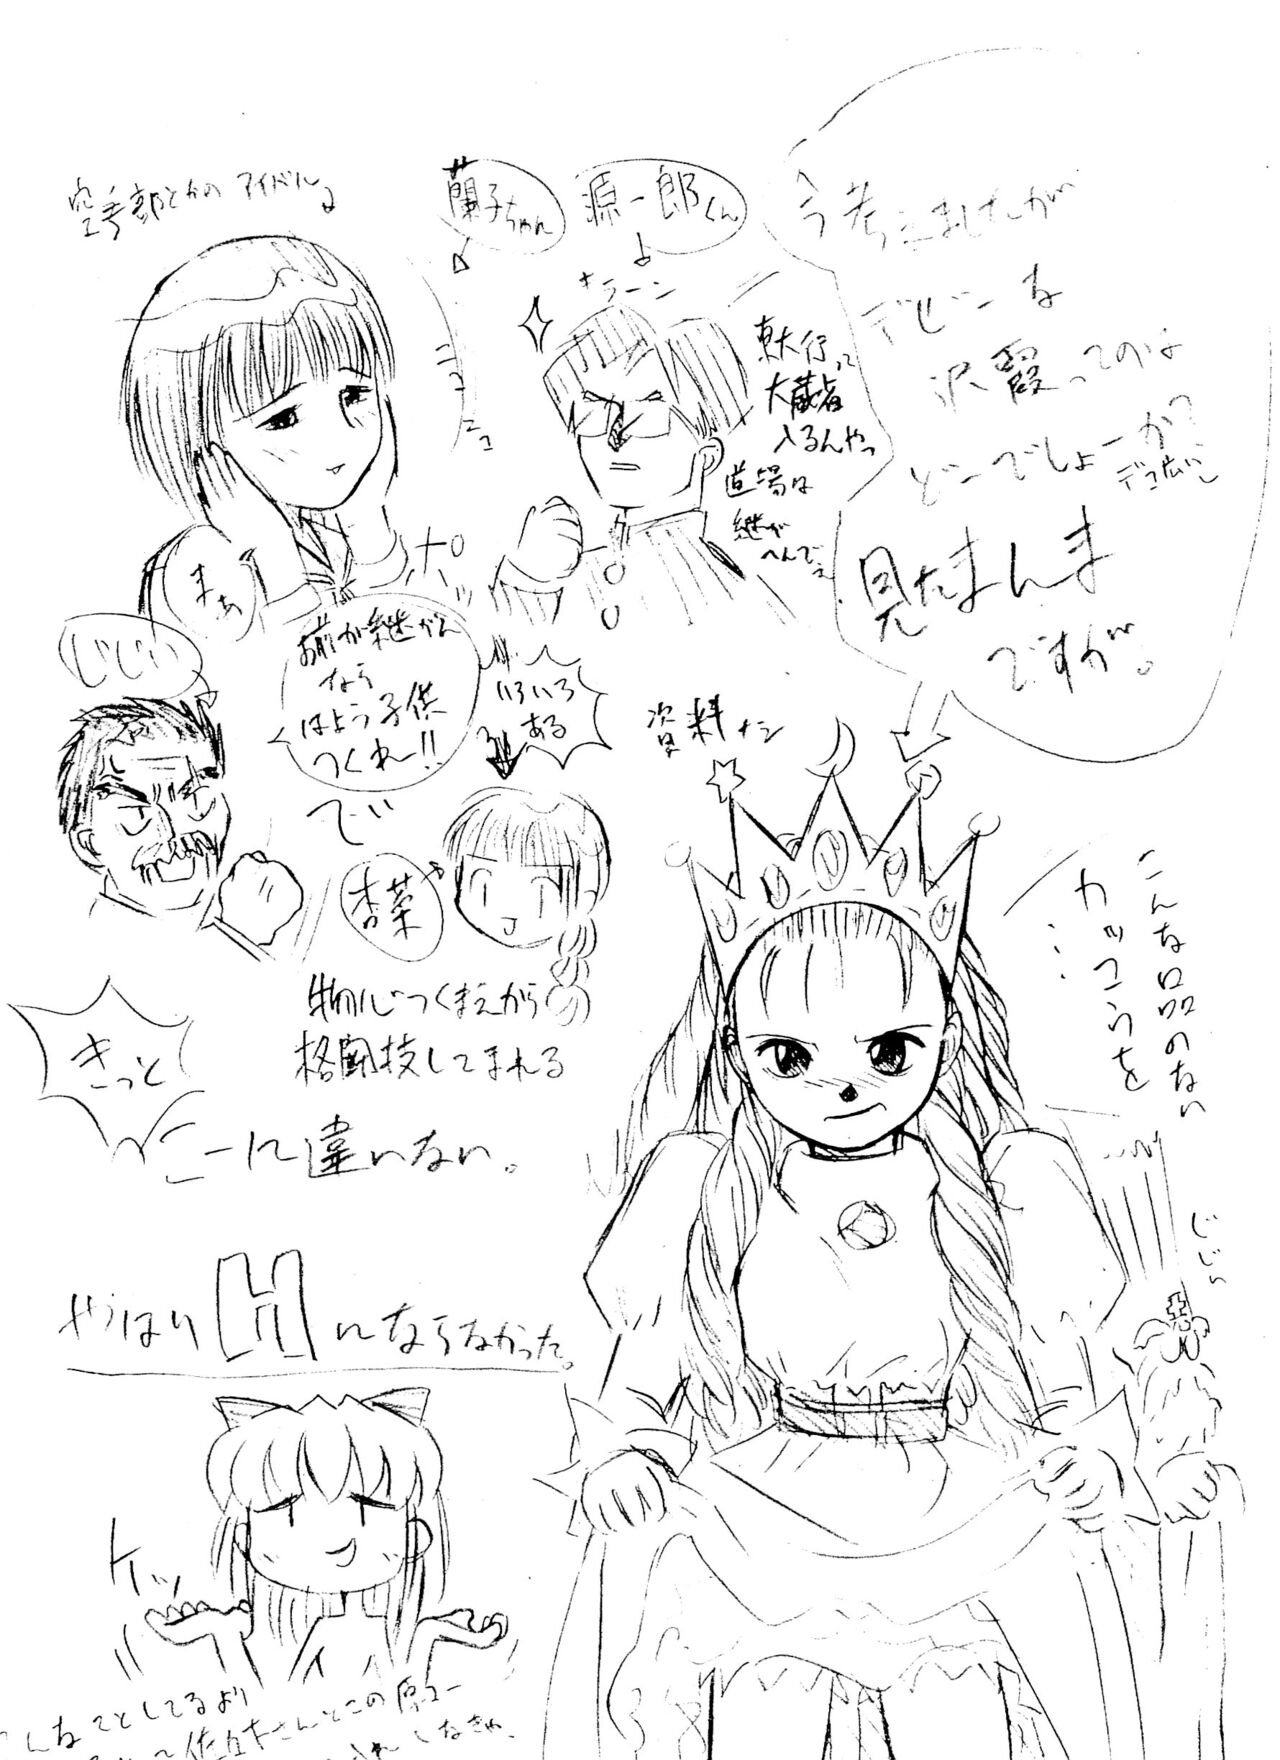 空手部とかのアイドル
蘭子ちゃん
源一郎くん
キラーン
東大行って
大蔵省
入るんやっ
道場は
継が
へんでェ
ニコニコ
まあ
ポッ
じじい
お前が継がん
なら
はよう子供
つくれー!!
いろいろ
ある
で
杏菜
物心つくまえから
格闘技してまれる
きっと
こーに違いない。
今考えましたが
デビーな
沢霞ってのは
どーでしょーか?
デコ広い
見たまんま
ですが。
資料ナシ
こんな品のない
カッコウを
……
じじい
やはりHにならなかった。
ケッ
こんなことしてるより
佐々木さんとこの原コー
しなきゃ、